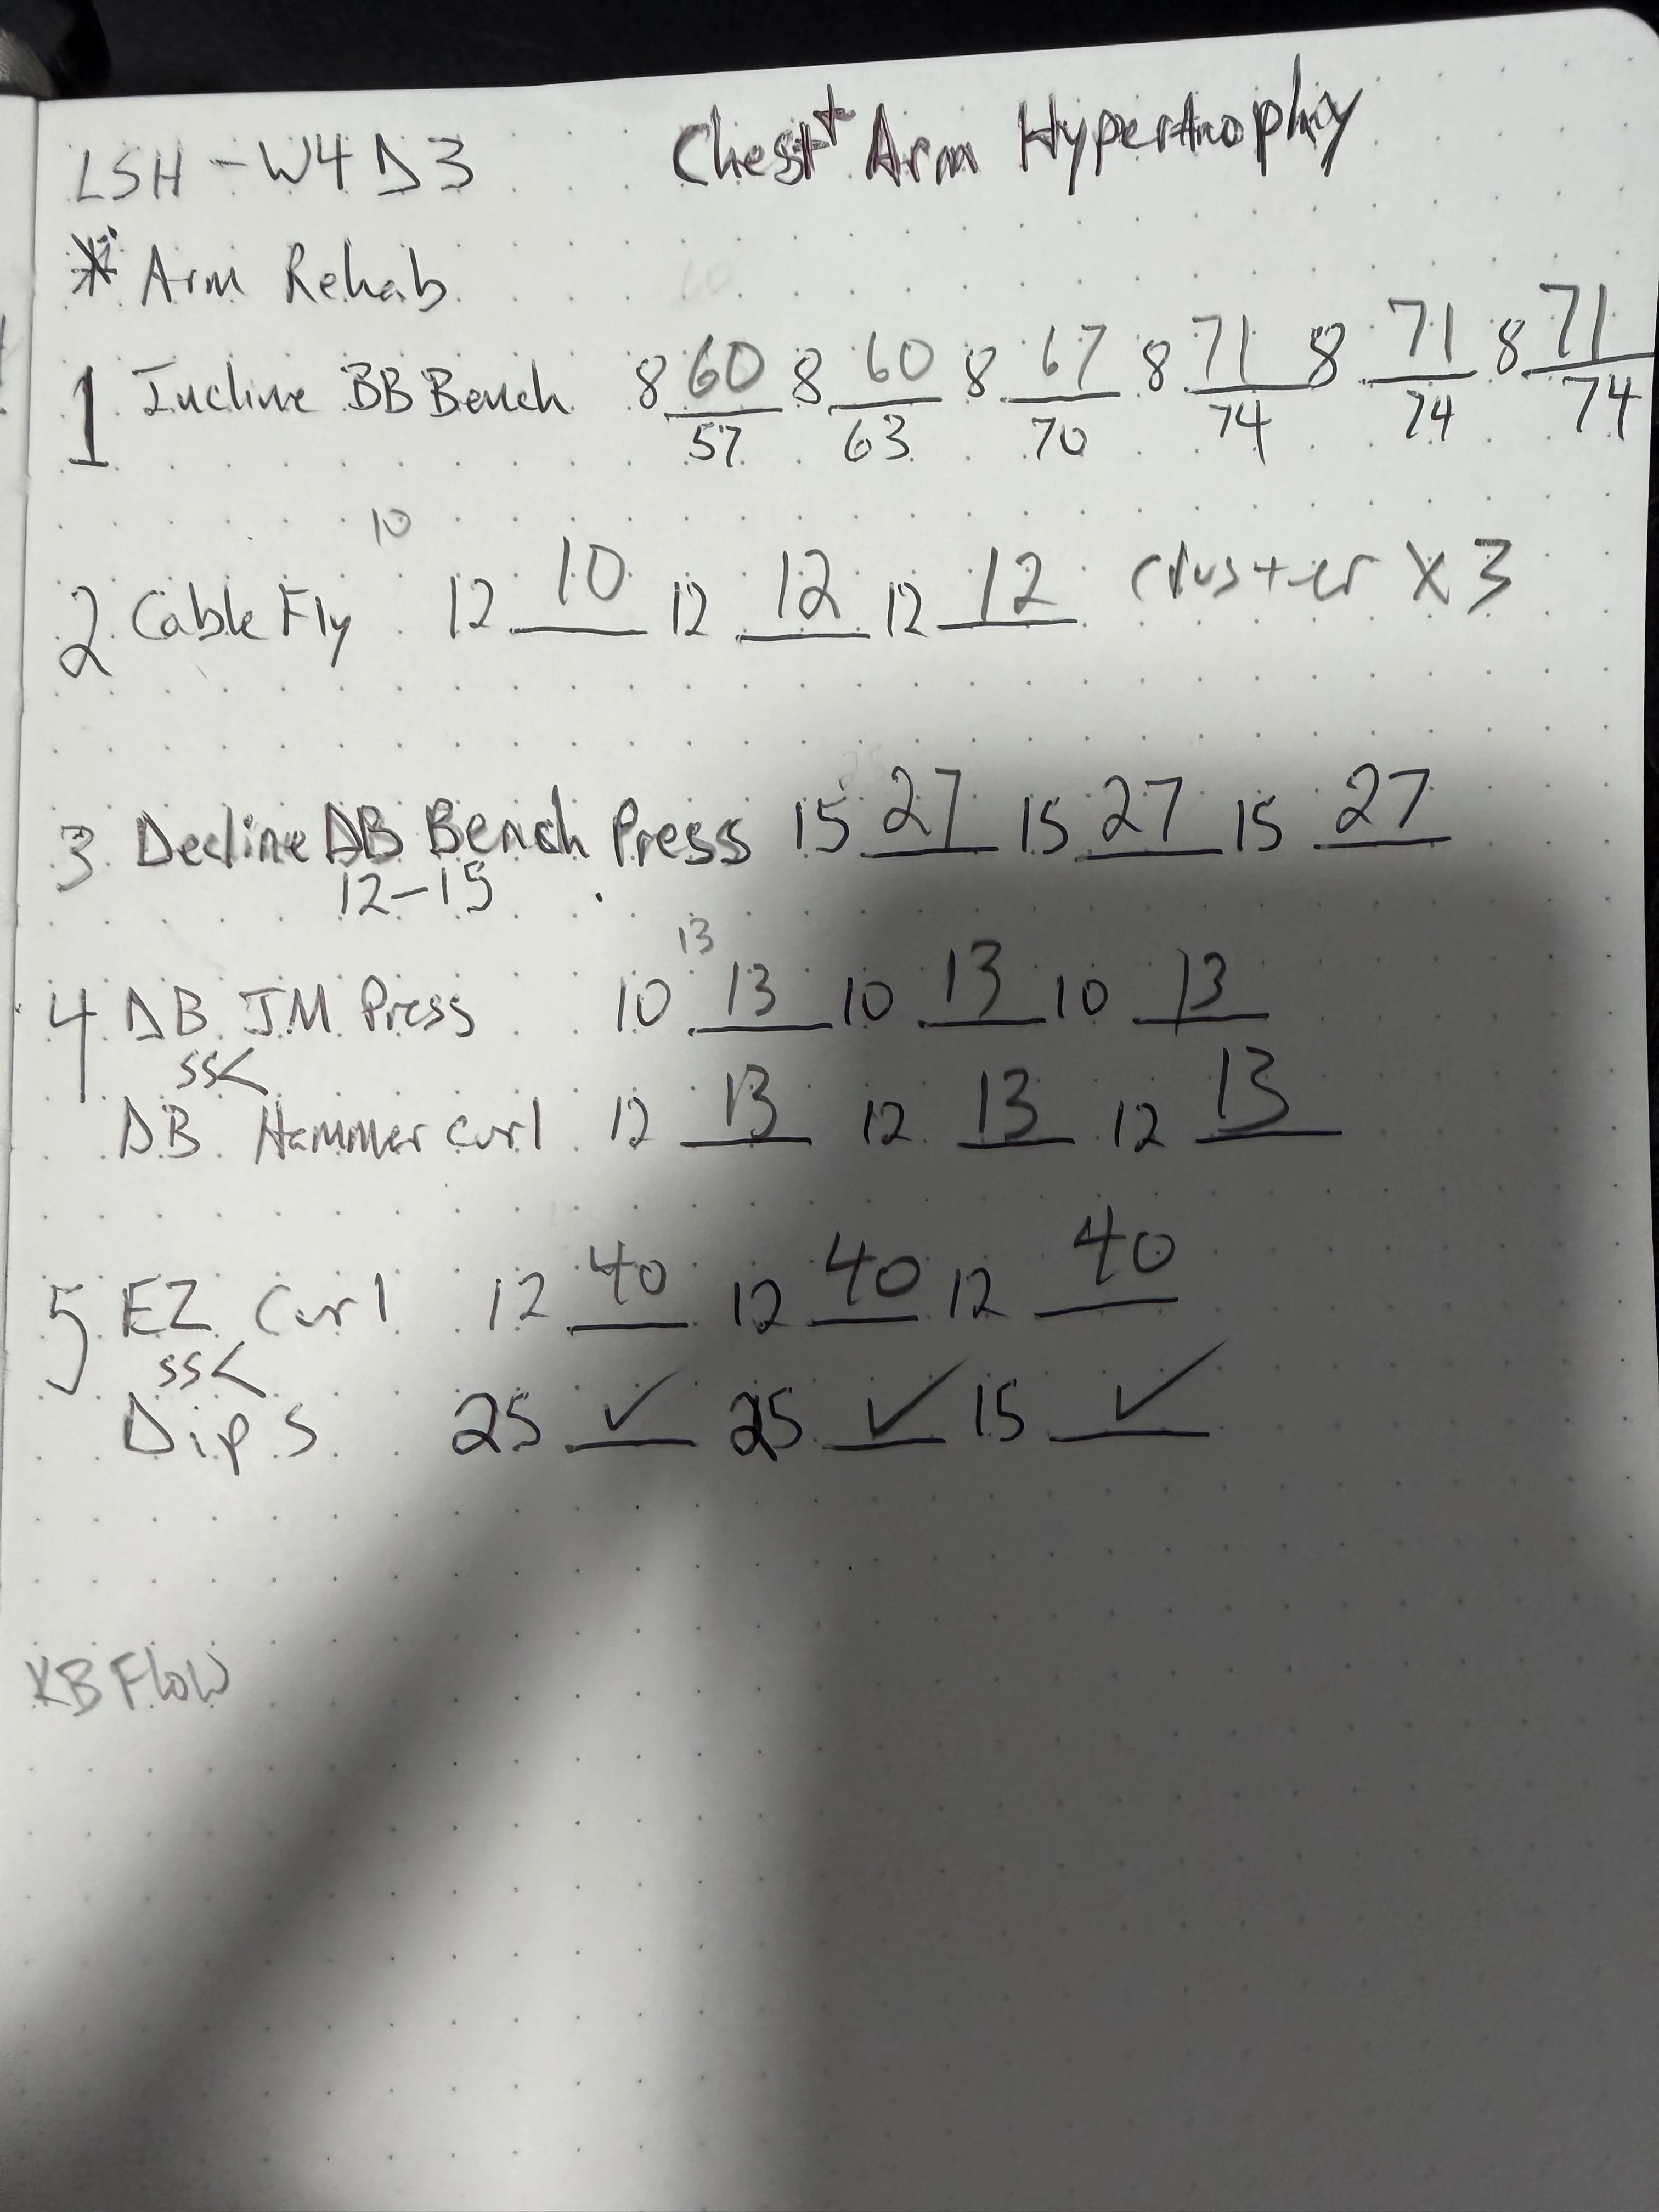 LSH - W4D3 Chest + Arm Hypertrophy
* Arm Rehab
1 Incline BB Bench 8 60 8 60 8 67 8 71 8 71 8 71
57 63 70 74 74 74
10
2 Cable Fly 12 10 12 12 12 12 cluster X 3
3 Decline DB Bench Press 15 27 15 27 15 27
12-15
13
4 DB JM Press 10 13 10 13 10 13
SS<
DB Hammer Curl 12 13 12 13 12 13
5 EZ Curl 12 40 12 40 12 40
SS<
Dips 25 ✓ 25 ✓ 15 ✓
KB Flow